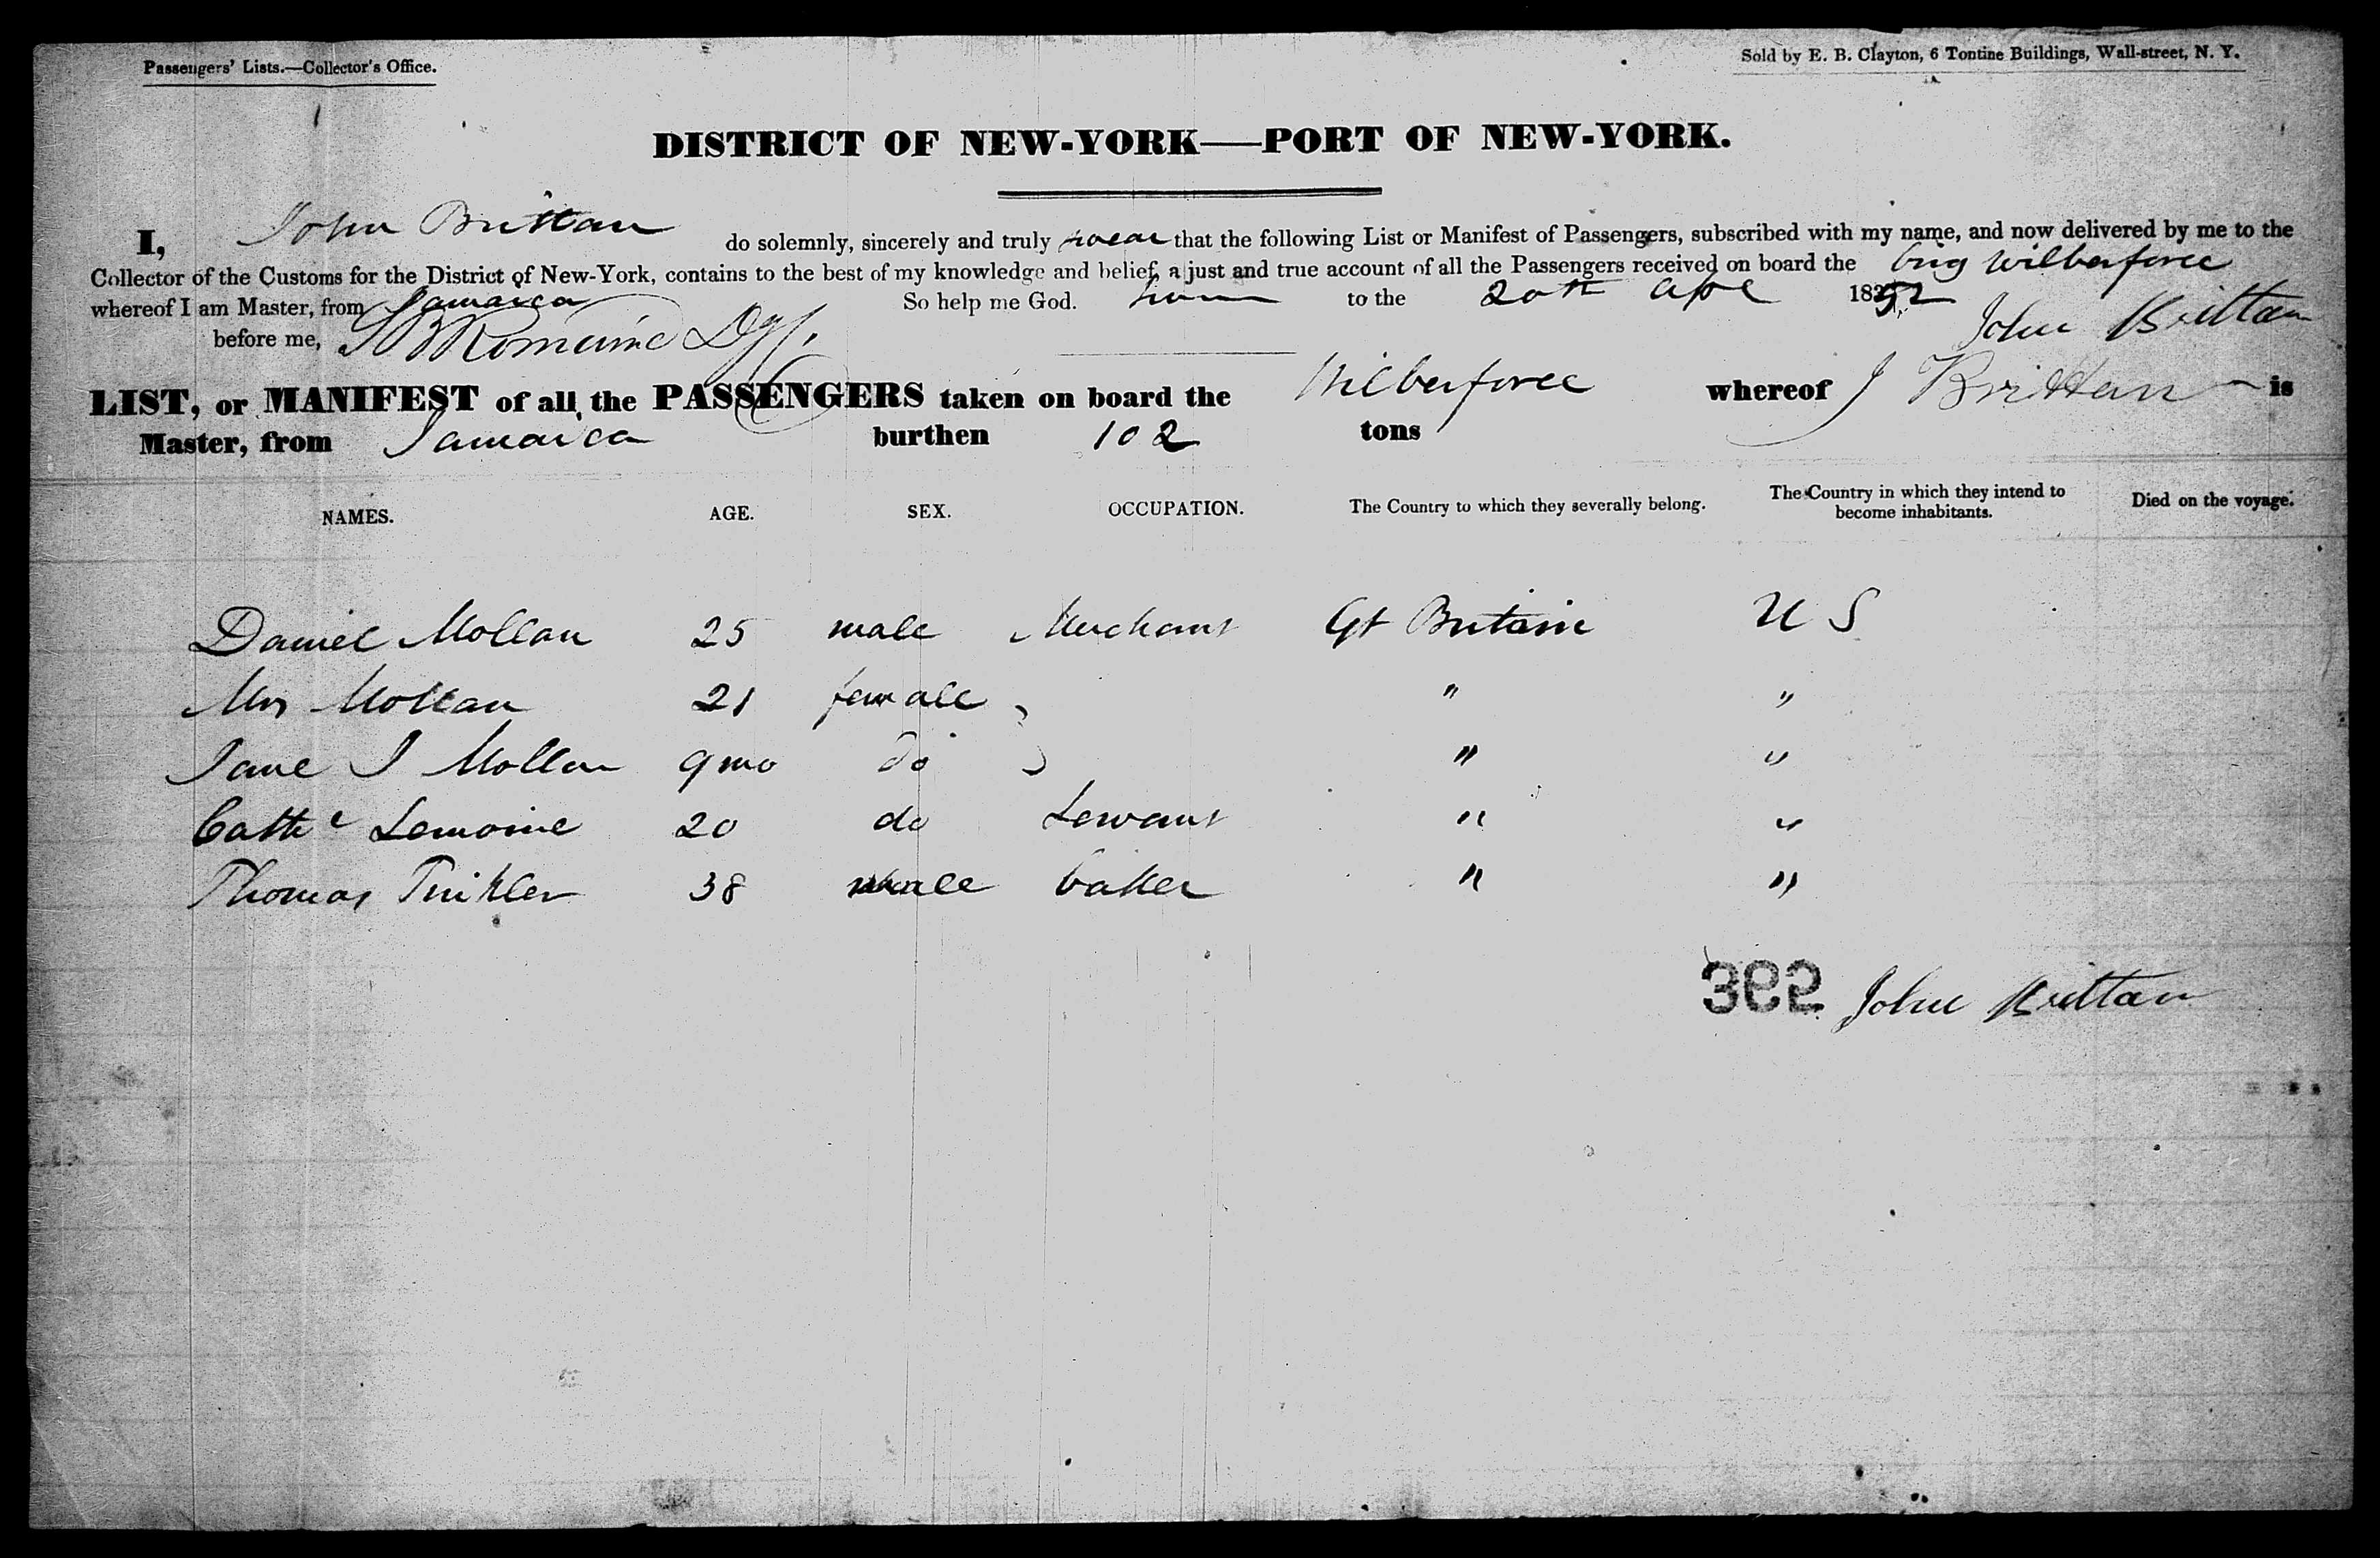 Passengers' Lists.—Collector's Office.
Sold by E. B. Clayton, 6 Tontine Buildings, Wall-street, N. Y.
DISTRICT OF NEW-YORK——PORT OF NEW-YORK.
I, John Brittan do solemnly, sincerely and truly swear that the following List or Manifest of Passengers, subscribed with my name, and now delivered by me to the
Collector of the Customs for the District of New-York, contains to the best of my knowledge and belief, a just and true account of all the Passengers received on board the brig Wilberforce
whereof I am Master, from Jamaica So help me God. Sworn to the 20th Ape 1832
before me, Romeine John Brittan
LIST, or MANIFEST of all the PASSENGERS taken on board the Wilberforce whereof J Brittan is
Master, from Jamaica burthen 102 tons
NAMES. AGE. SEX. OCCUPATION. The Country to which they severally belong. The Country in which they intend to become inhabitants. Died on the voyage.
Daniel Mollan 25 male Merchant Gt Britain U S
Mrs Mollan 21 female " "
Jane J Mollan 9 mo do " "
Cathe Lemoine 20 do Servant " "
Thomas Tinkler 38 male baker " "
392 John Brittan